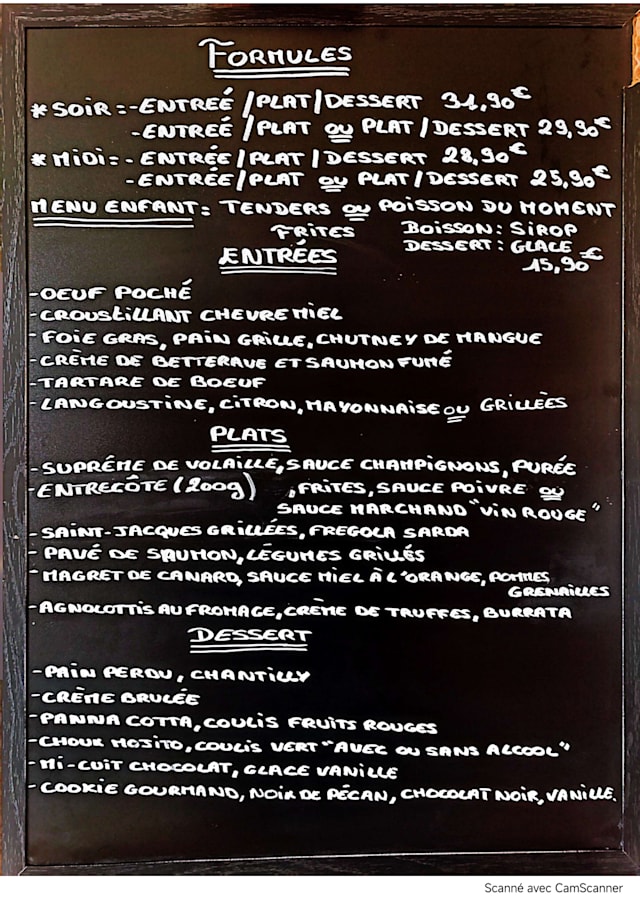 FORMULES
*SOIR:-ENTREÉ/PLAT/DESSERT 31,90€
-ENTREÉ/PLAT OU PLAT/DESSERT 29,90€
*MIDI:-ENTRÉE/PLAT/DESSERT 28,90€
-ENTRÉE/PLAT OU PLAT/DESSERT 25,90€
MENU ENFANT: TENDERS OU POISSON DU MOMENT
FRITES BOISSON: SIROP
DESSERT: GLACE
15,90€
ENTRÉES
-OEUF POCHÉ
-CROUSTILLANT CHEVRE MIEL
-FOIE GRAS, PAIN GRILLE, CHUTNEY DE MANGUE
-CRÈME DE BETTERAVE ET SAUMON FUMÉ
-TARTARE DE BOEUF
-LANGOUSTINE, CITRON, MAYONNAISE OU GRILLÈES
PLATS
-SUPRÉME DE VOLAILLE, SAUCE CHAMPIGNONS, PURÉE
-ENTRECÔTE (200g) , FRITES, SAUCE POIVRE OU
SAUCE MARCHAND "VIN ROUGE"
-SAINT-JACQUES GRILLÉES, FREGOLA SARDA
-PAVÉ DE SAUMON, LÉGUMES GRILLÉS
-MAGRET DE CANARD, SAUCE MIEL À L'ORANGE, POMMES
GRENAILLES
-AGNOLOTTIS AU FROMAGE, CRÈME DE TRUFFES, BURRATA
DESSERT
-PAIN PERDU, CHANTILLY
-CRÈME BRULÉE
-PANNA COTTA, COULIS FRUITS ROUGES
-CHOUX MOJITO, COULIS VERT "AVEC OU SANS ALCOOL"
-MI-CUIT CHOCOLAT, GLACE VANILLE
-COOKIE GOURMAND, NOIX DE PÉCAN, CHOCOLAT NOIR, VANILLE.
Scanné avec CamScanner